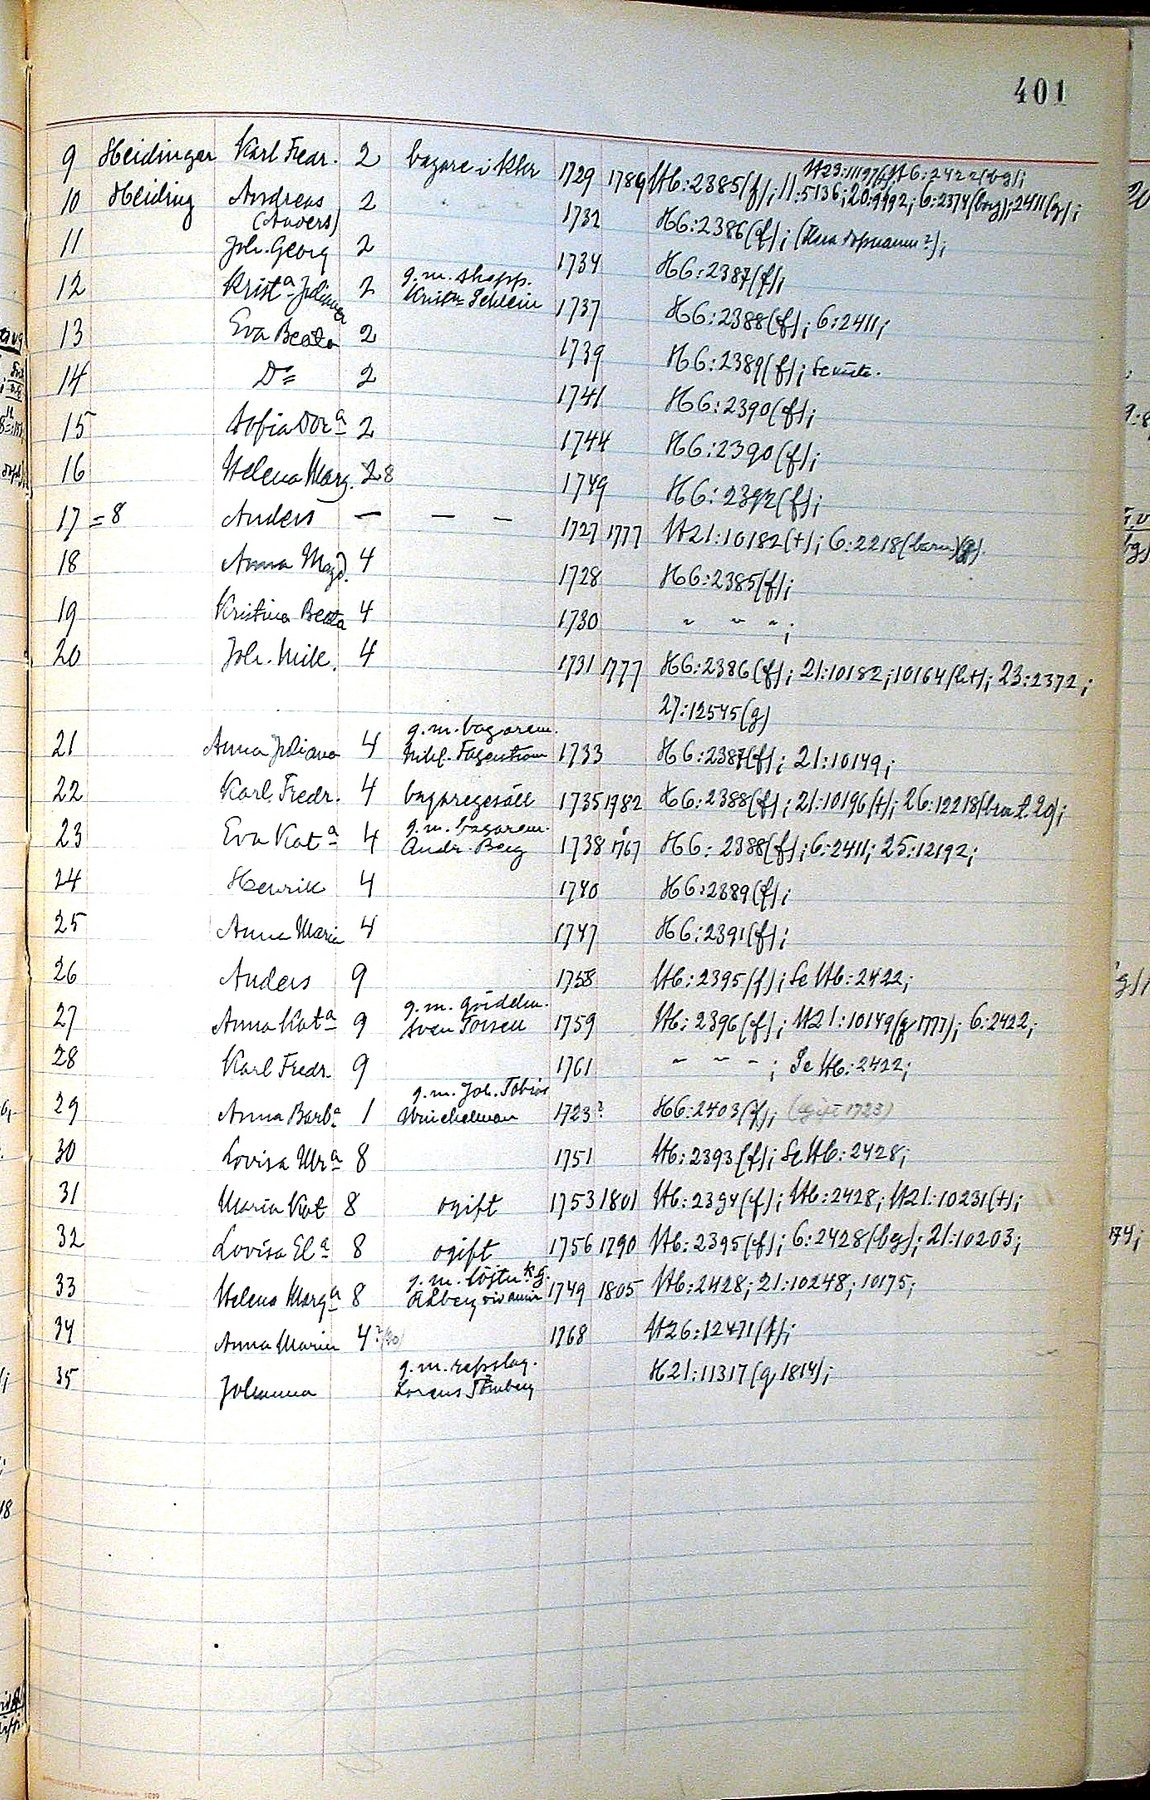 401
9 Heidinger Karl Fredr. 2 bagare i Khr 1729 1789 H6:2385(f); 11:5136; 20:9992; 6:2374(brg); 2411(g);
H23:11197(; H6:2422(bg);
10 Heiding Andreas 2 1732 H6:2386(f);
(Anvers)
11 Joh. Georg 2 1734 H6:2387(f);
12 Krista Juliana 2 g.m. skepp. 1737 H6:2388(f); 6:2411;
13 Eva Beata 2 1739 H6:2389(f);
14 D= 2 1741 H6:2390(f);
15 Sofia Dora 2 1744 H6:2390(f);
16 Helena Marg. 28 1749 H6:2392(f);
17 = 8 Anders — — — 1727 1777 H21:10182(+); 6:2218(barn)(g).
18 Anna Magd. 4 1728 H6:2385(f);
19 Kristina Beata 4 1730 " " ";
20 Joh. Mik. 4 1731 1777 H6:2386(f); 21:10182; 10164(2+); 23:2372;
27:12545(g)
21 Anna Juliana 4 g.m. bagarem. 1733 H6:2387(f); 21:10149;
Mikl. Fagerström
22 Karl Fredr. 4 bagaregesäll 1735 1982 H6:2388(f); 21:10196(+); 26:12218
23 Eva Kata 4 g.m. bagarem. 1738 1767 H6:2388(f); 6:2411; 25:12192;
Andr. Berg
24 Henrik 4 1740 H6:2389(f);
25 Anna Maria 4 1747 H6:2391(f);
26 Anders 9 1758 H6:2395(f); Se H6:2422;
27 Anna Kata 9 g.m. 1759 H6:2396(f); H21:10149(g 1777); 6:2422;
Sven
28 Karl Fredr. 9 1761 " " "; Se H6:2422;
29 Anna Barba 1 g.m. Joh. Tobias 1723? H6:2403(f); (gift 1723)
Winckelman
30 Lovisa Mra 8 1751 H6:2393(f); Se H6:2428;
31 Maria Kat 8 ogift 1753 1801 H6:2394(f); H6:2428; H21:10231(+);
32 Lovisa Ela 8 ogift 1756 1790 H6:2395(f); 6:2428(bg); 21:10203;
33 Helena Marga 8 g.m. 1749 1805 H6:2428; 21:10248; 10175;
34 Anna Maria 4 1768 H26:12471(f);
35 Johanna g.m. repslag. H21:11317(g 1814);
Lorens